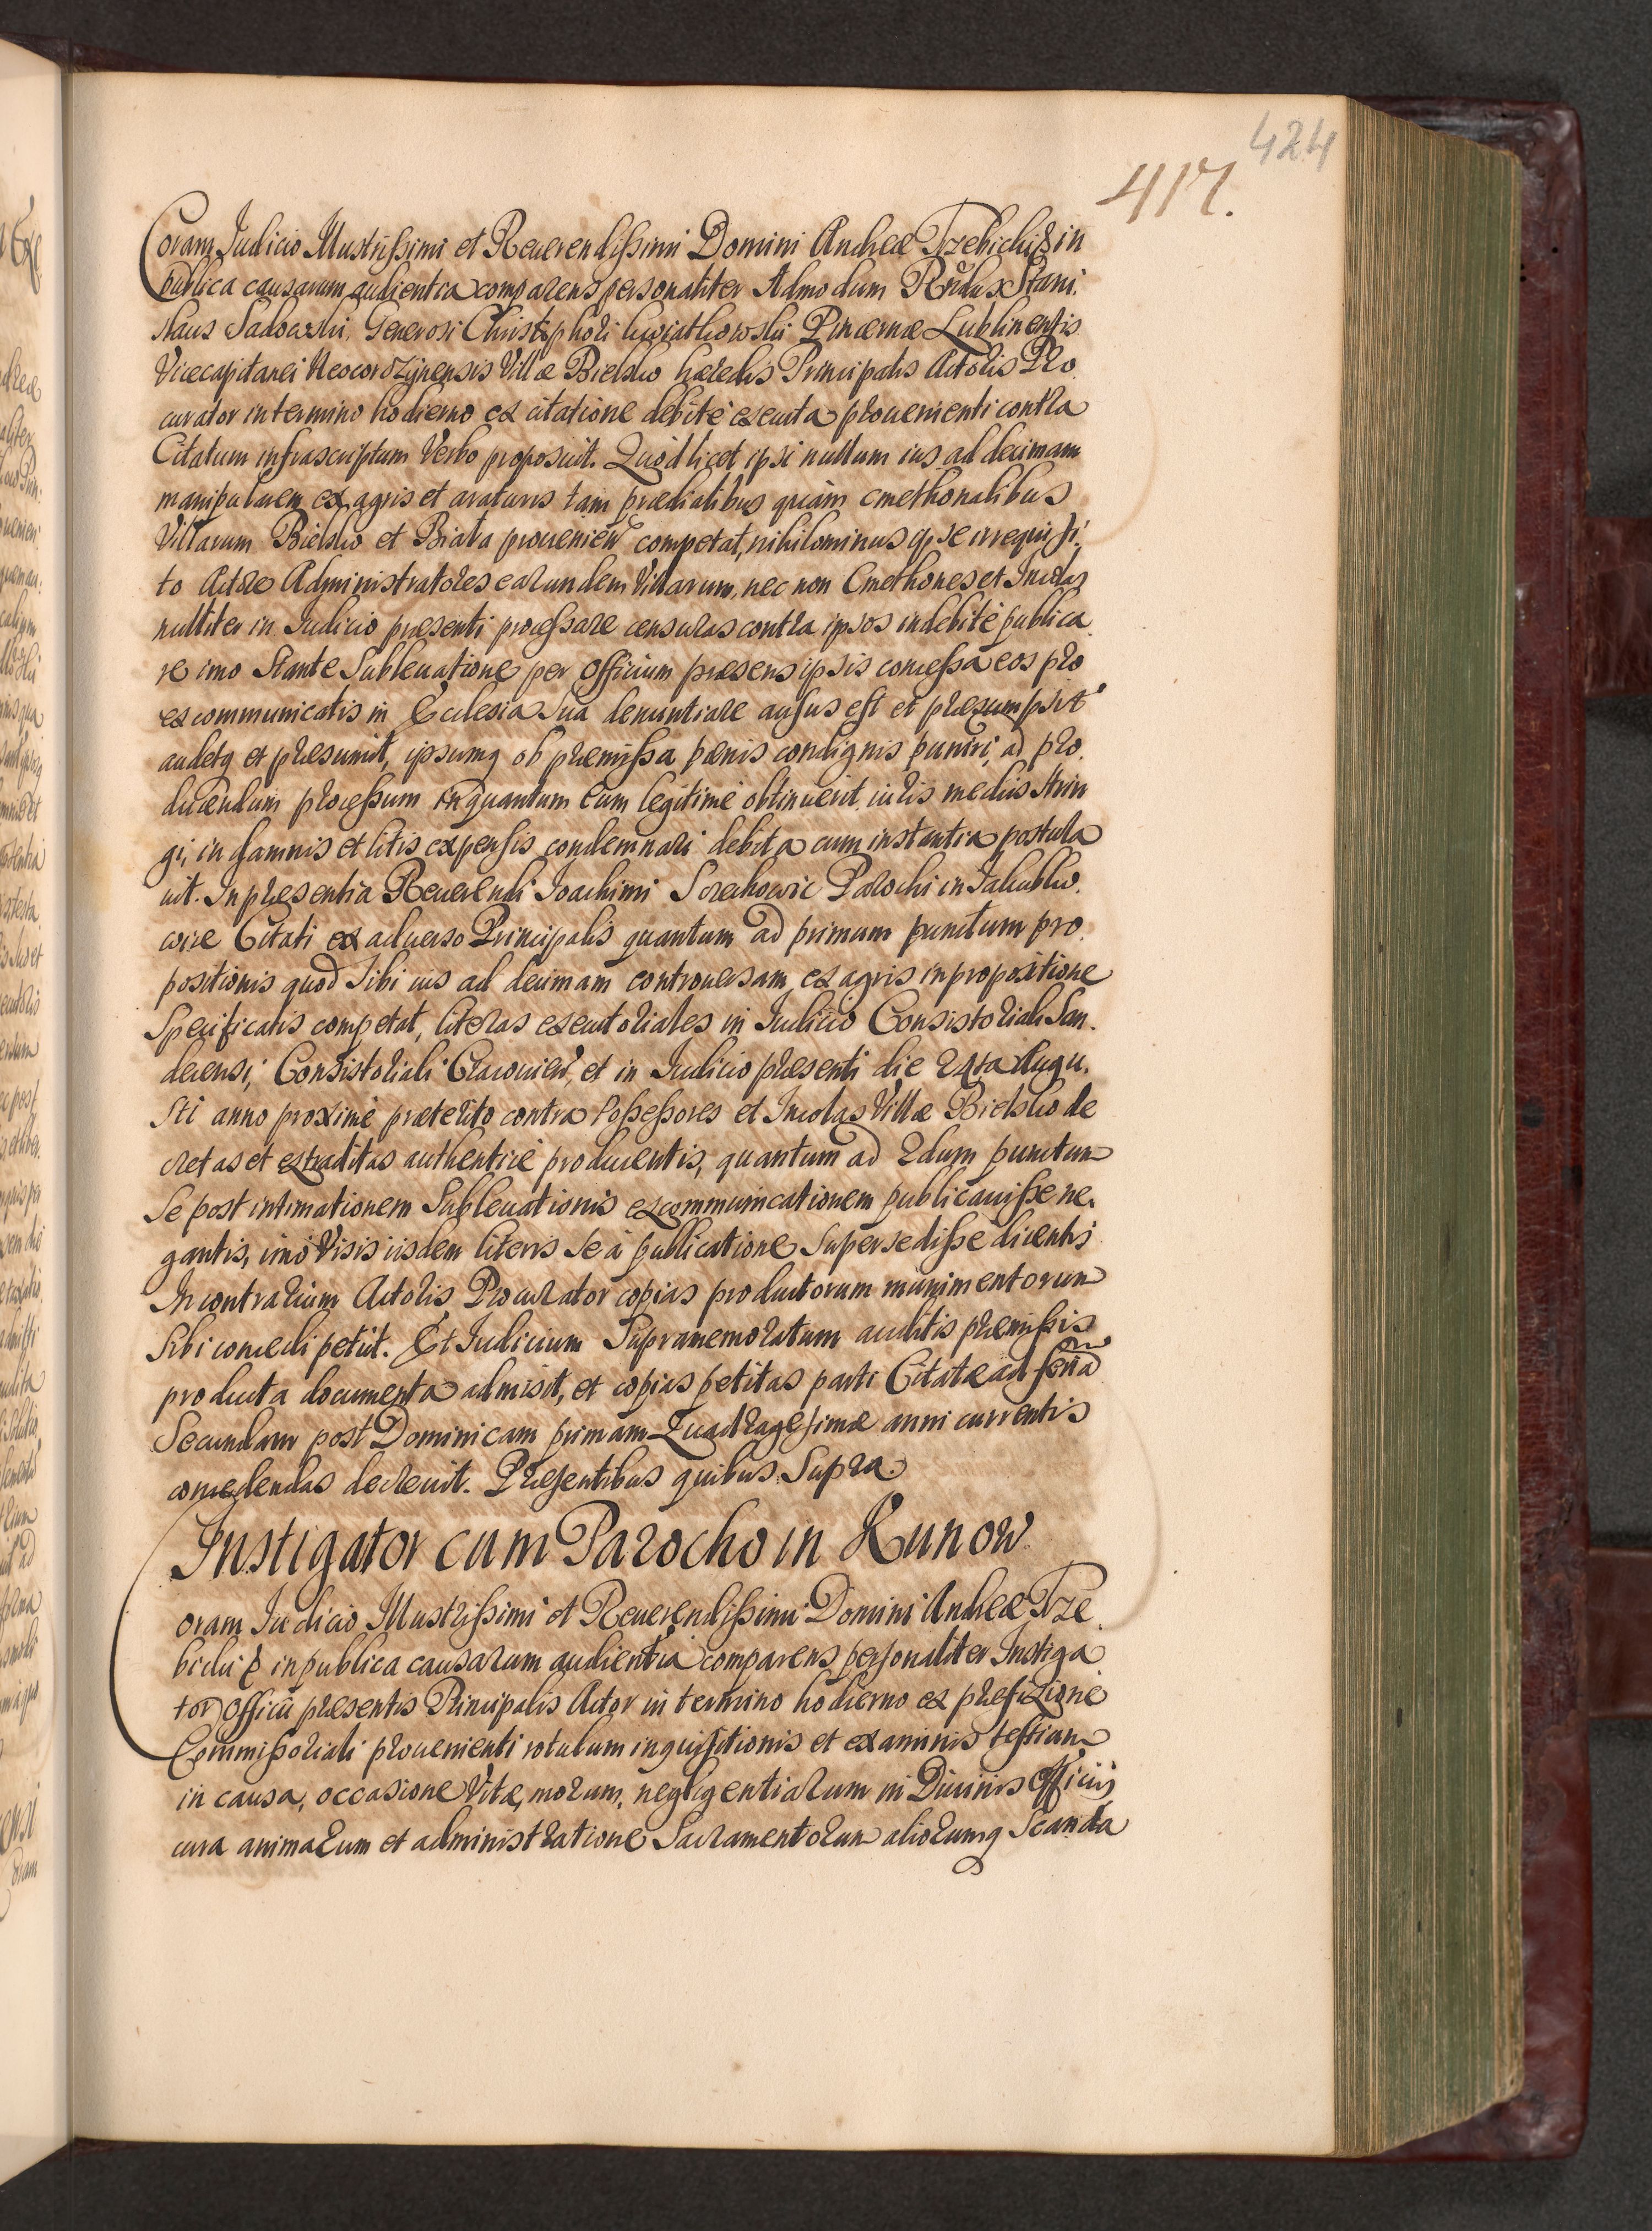 424
417.
Coram Iudicio Illustrissimi et Reuerendissimi Domini Andreæ Trzebicki & in
publica causarum audientia comparens personaliter Admodum Rñdus Stani
slaus Sadowski, Generosi Christophori Kwiatkowski Pincernæ Lublinensis
Vicecapitanei Neocorczynensis Villæ Bielsko hæredis Principalis Actoris Pro
curator in termino hodierno ex citatione debitè executa proueniente contra
Citatum infrascriptum Verbo proposuit. Quòd licet ipsi nullum ius ad decimam
manipularem ex agris et araturis tam prædialibus quàm cmethonalibus
Villarum Bielsko et Biała prouenien̄ competat, nihilominus ipse irrequisi
to Actore Administratores earundem Villarum, nec non Cmethones et Incolas
nulliter in Iudicio præsenti processare censuras contra ipsos indebitè publica
re imo Stante Subleuatione per officium præsens ipsis concessa eos pro
excommunicatis in Ecclesia sua denuntiare ausus est et præsumpsit
audetq et præsumit, ipsumq ob præmissa pœnis condignis puniri, ad pro.
ducendum processum inquantum eum legitimè obtinuerit iuris mediis strin
gi, in damnis et litis expensis condemnari debita cum instantia postula
uit. In præsentia Reuerendi Ioachimi Parochi in Iakubko.
wice Citati ex aduerso Principalis quantum ad primum punctum pro.
positionis quod Sibi ius ad decimam controuersam, ex agris in propositione
Specificatis competat, literas executoriales in Iudicio Consistoriali San.
decensi, Consistoriali Cracouien̄, et in Iudicio præsenti die 24ta Augu.
sti anno proximè præterito contra Possessores et Incolas Villæ Bielsko de
cretas et extraditas authenticè producentis, quantum ad 2dum punctum
Se post intimationem Subleuationis excommunicationem publicauisse ne.
gantis, imò Visis iisdem literis Se à publicatione Supersedisse dicentis
In contrarium Actoris Procurator copias productorum munimentorum
Sibi concedi petiit. Et Iudicium Supramemoratum auditis præmissis
producta documenta admisit, et copias petitas parti Citatæ ad feria
Secundam post Dominicam primam Quadragesimæ anni currentis
concedendas decreuit. Præsentibus quibus Supra.
Instigator cum Parocho in Kunow.
Coram Iudicio Illustrissimi et Reuerendissimi Domini Andreæ Trze
bicki & in publica causarum audientia comparens personaliter Instiga
tor Officii præsentis Principalis Actor in termino hodierno ex præfixione
Commissoriali prouenienti rotulum inquisitionis et examinis testium
in causa, occasione Vitæ, morum, negligentiarum in Diuinis Officiis
cura animarum et administratione Sacramentorum aliorumq Scanda